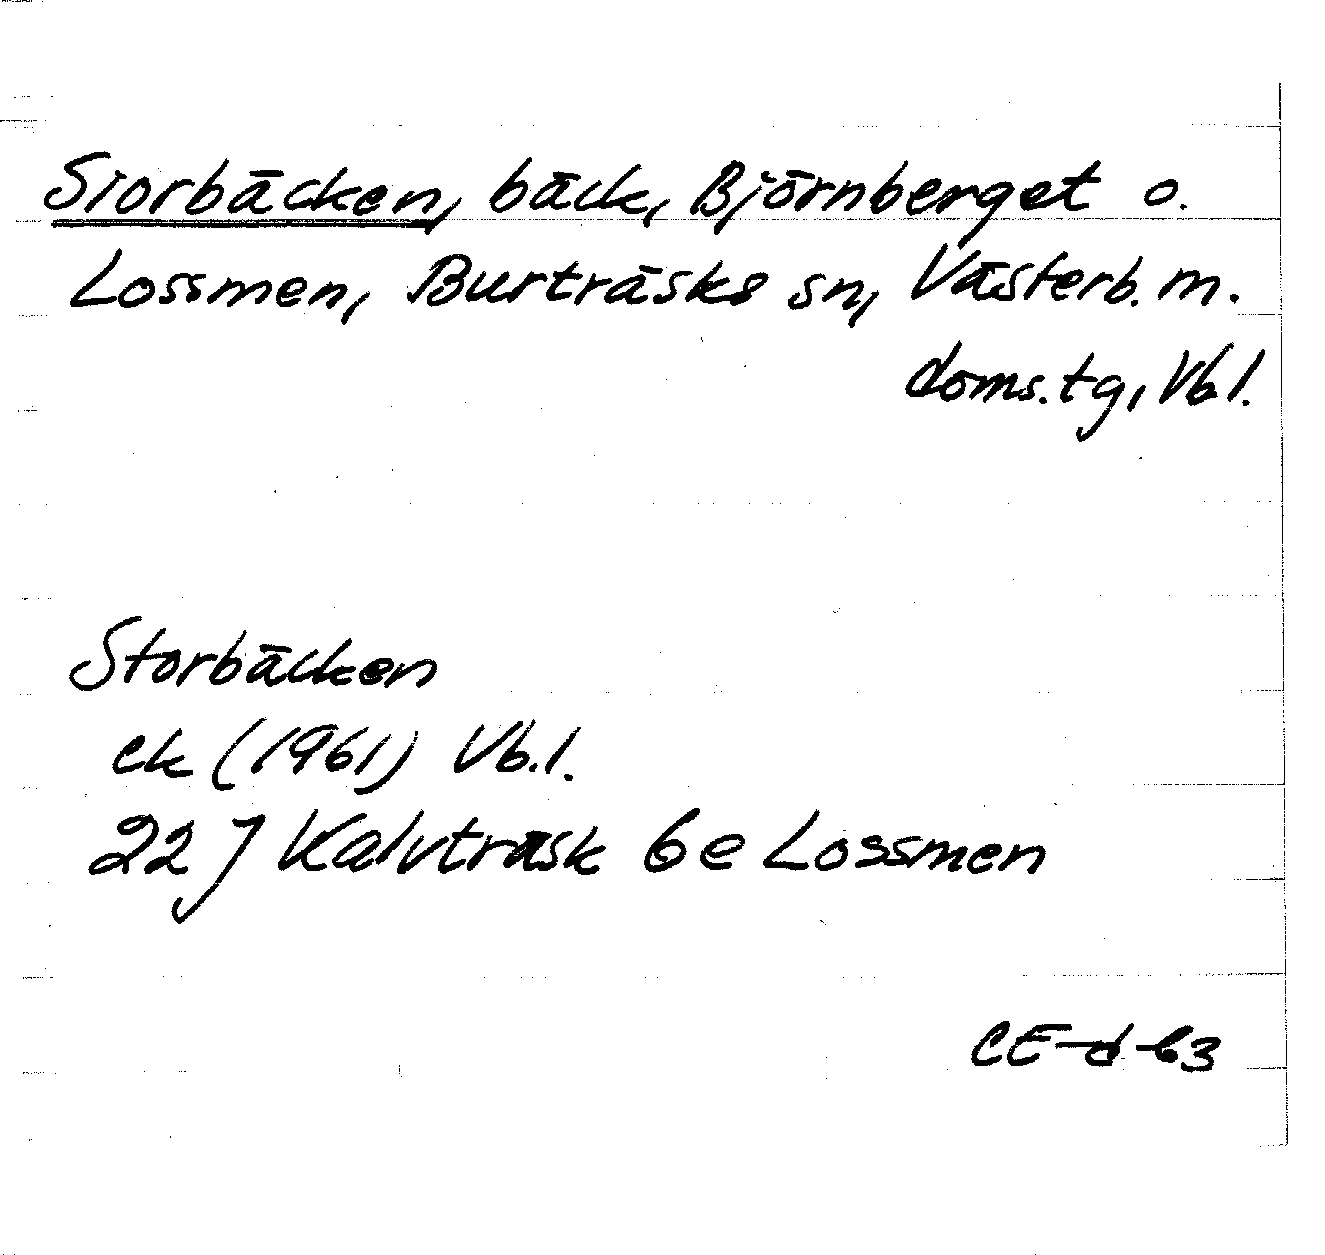 Storbäcken, bäck, Björnberget o.
Lossmen, Burträsks sn, Västerb. m.
doms.tg, Vb l.
Storbäcken
ek (1961) Vb.l.
22 J Kalvträsk 6e Lossmen
CE-d-63